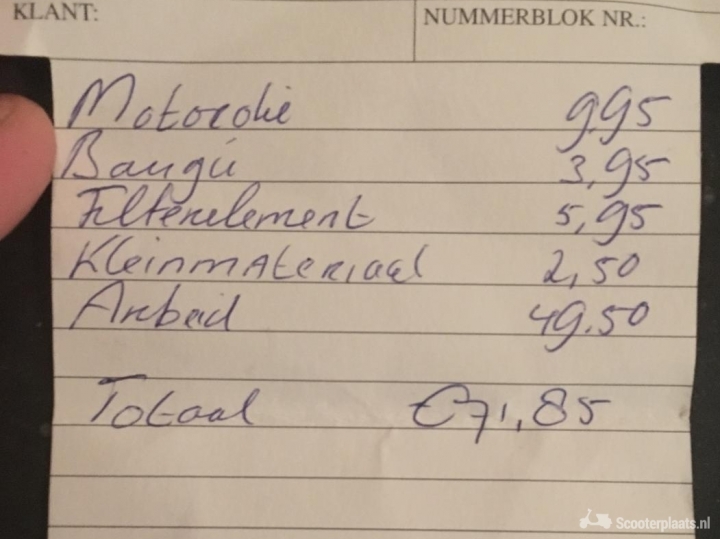 KLANT: NUMMERBLOK NR.:
Motorolie 9.95
Bougie 3,95
Filterelement 5,95
Kleinmateriaal 2,50
Arbeid 49.50
Totaal €71,85
Scooterplaats.nl